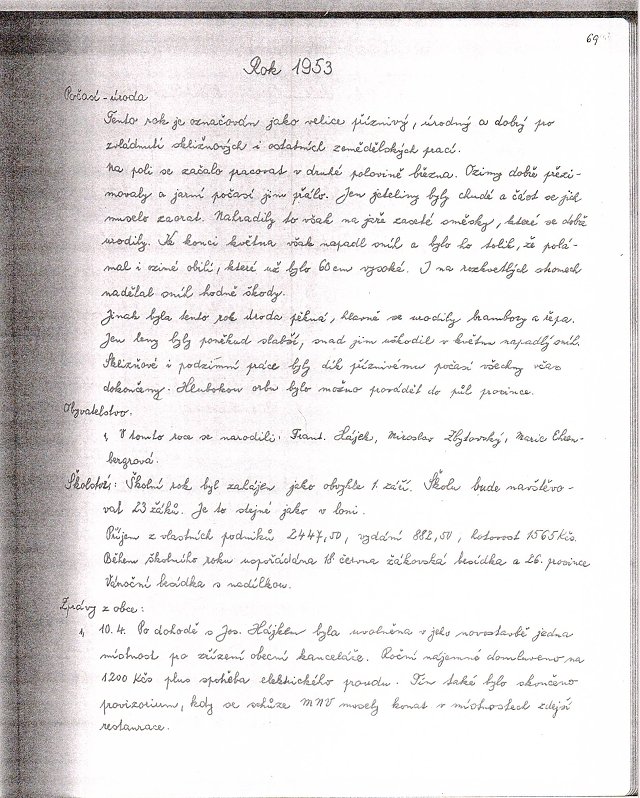 69
Rok 1953
Počasí - úroda
Tento rok je označován jako velice příznivý, úrodný a dobrý po
zvládnutí sklizňových i ostatních zemědělských prací.
Na poli se začalo pracovat v druhé polovině března. Ozimy dobře přezi-
movaly a jarní počasí jim přálo. Jen jeteliny byly chudé a část se jich
muselo zaorat. Nahradily to však na jaře zaseté směsky, které se dobře
urodily. Na konci května však napadl sníh a bylo ho tolik, že polá-
mal i ozimé obilí, které už bylo 60 cm vysoké. I na rozkvetlých stromech
nadělal sníh hodně škody.
Jinak byla tento rok úroda pěkná, hlavně se urodily brambory a řepa.
Jen leny byly poněkud slabší, snad jim uškodil v květnu napadlý sníh.
Sklizňové i podzimní práce byly dík příznivému počasí všechny včas
dokončeny. Hlubokou orbu bylo možno provádět do půl prosince.
Obyvatelstvo.
V tomto roce se narodili: Frant. Hájek, Miroslav Zbytovský, Marie Ehren-
bergrová.
Školství: Školní rok byl zahájen jako obvykle 1. září. Školu bude navštěvo-
vat 23 žáků. Je to stejné jako v loni.
Příjem z vlastních podniků 2447,50, vydání 882,50, hotovost 1565 Kčs.
Během školního roku uspořádána 18. června žákovská besídka a 26. prosince
Vánoční besídka s nadílkou.
Zprávy z obce:
10.4. Po dohodě s Jos. Hájkem byla uvolněna v jeho novostavbě jedna
místnost po zřízení obecní kanceláře. Roční nájemné domluveno na
1200 Kčs plus spotřeba elektrického proudu. Tím také bylo skončeno
provizorium, kdy se schůze MNV musely konat v místnostech zdejší
restaurace.